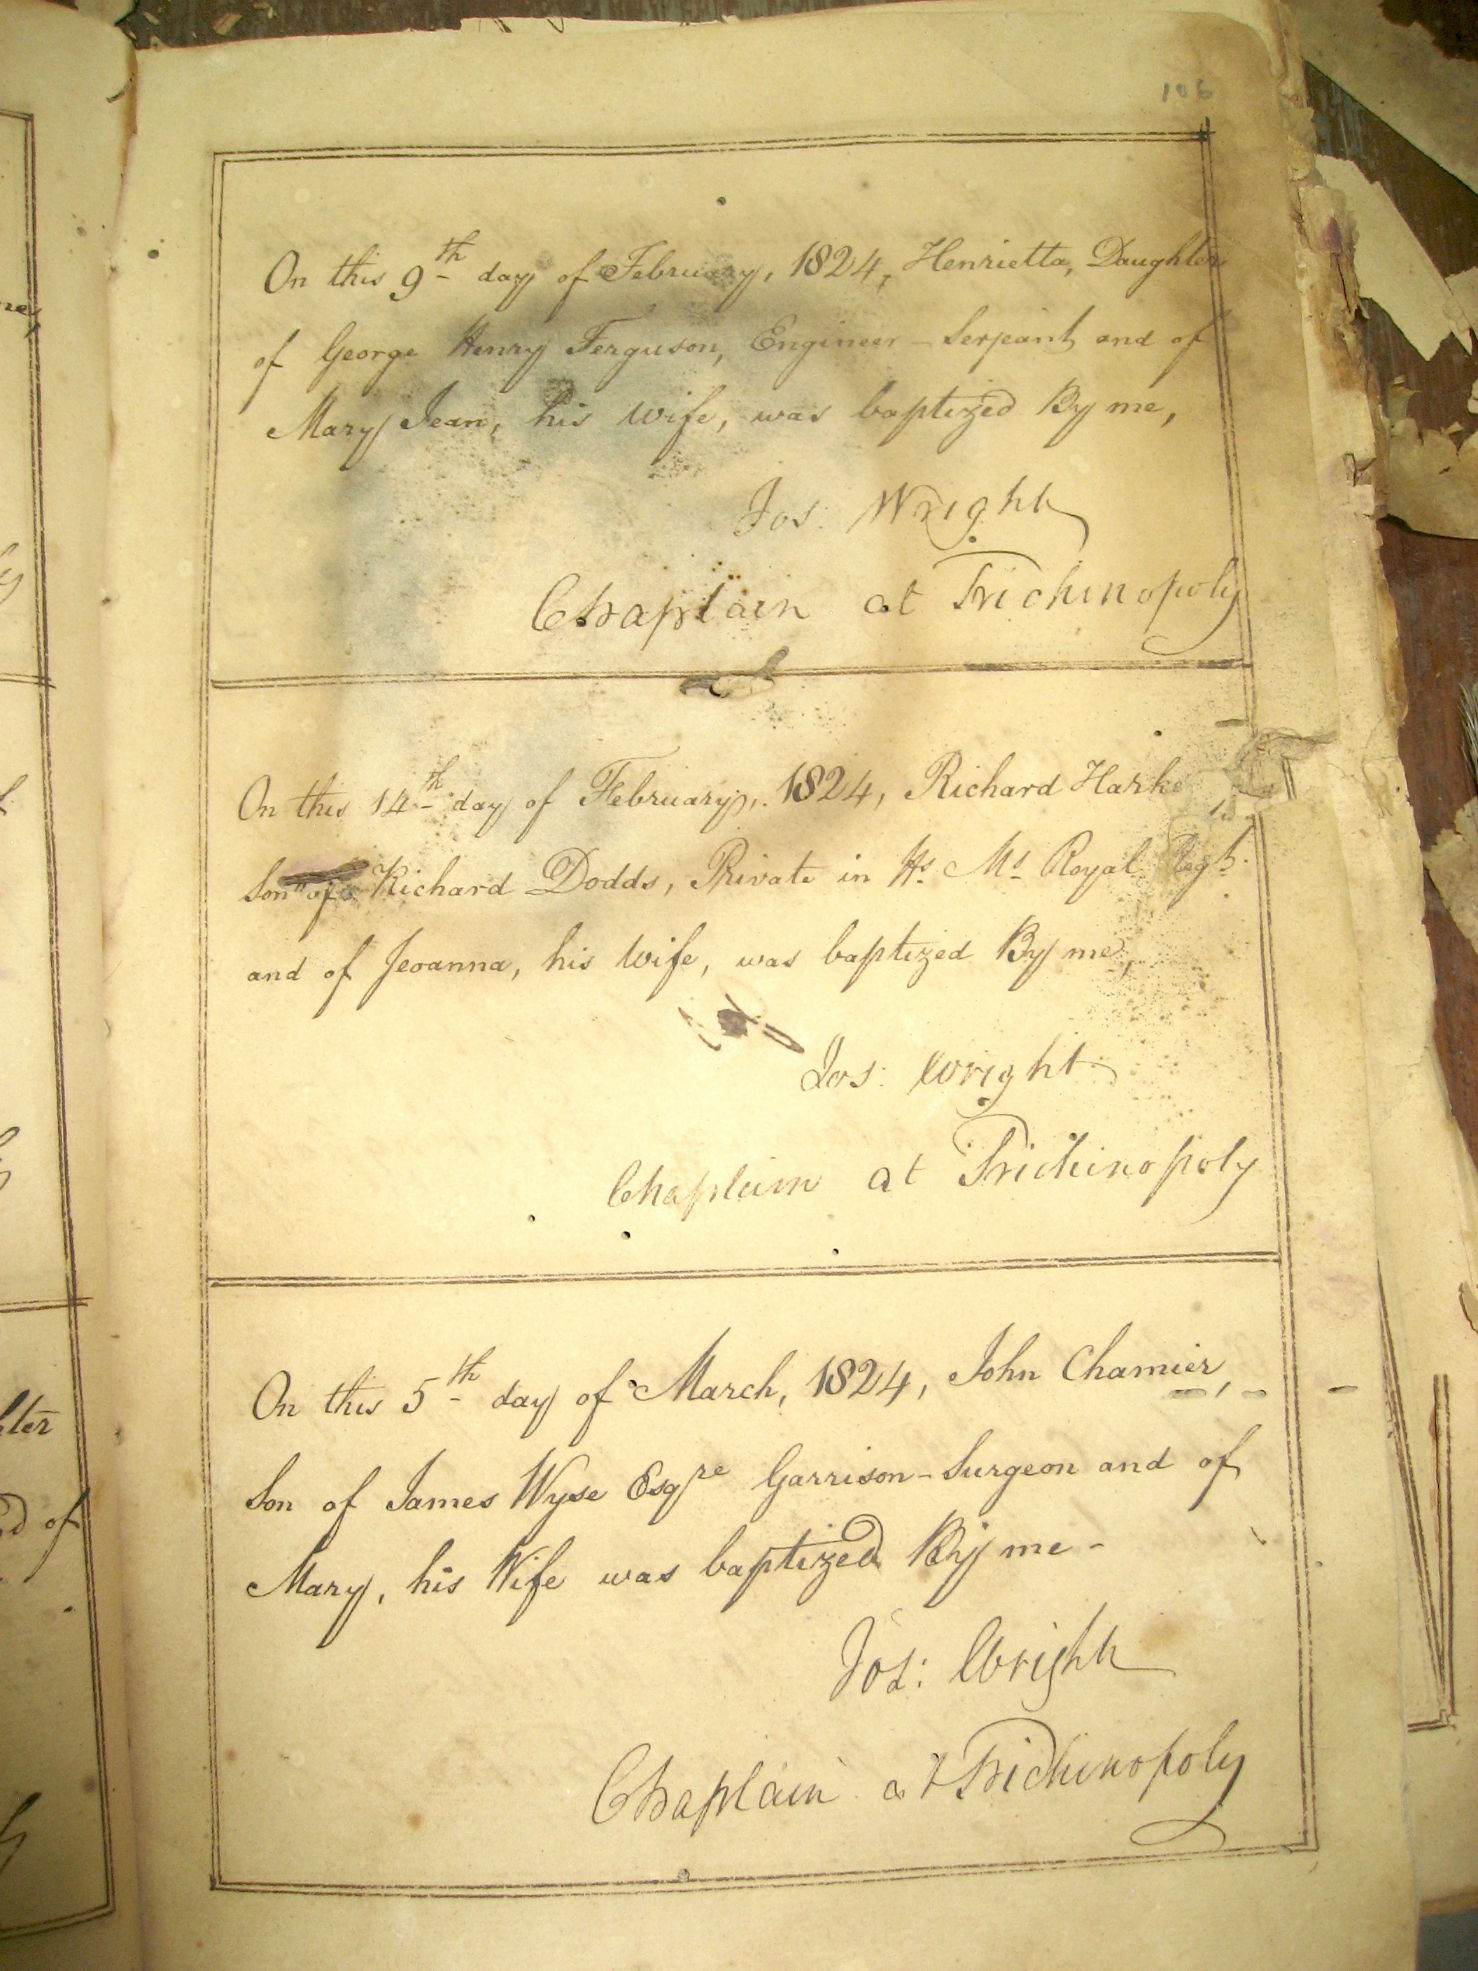 106
On this 9th day of February, 1824, Henrietta, Daughter
of George Henry Ferguson, Engineer - Serjeant and of
Mary Jean, his Wife, was baptized By me,
Jos: Wright
Chaplain at Trichinopoly
On this 14th day of February, 1824, Richard
Son of Richard Dodds, Private in Hs. Ms. Royal Regt.
and of Jeoanna, his Wife, was baptized By me,
Jos: Wright
Chaplain at Trichinopoly
On this 5th day of March, 1824, John Chamier,
Son of James Wyse Esqre Garrison - Surgeon and of
Mary, his Wife was baptized By me -
Jos: Wright
Chaplain at Trichinopoly